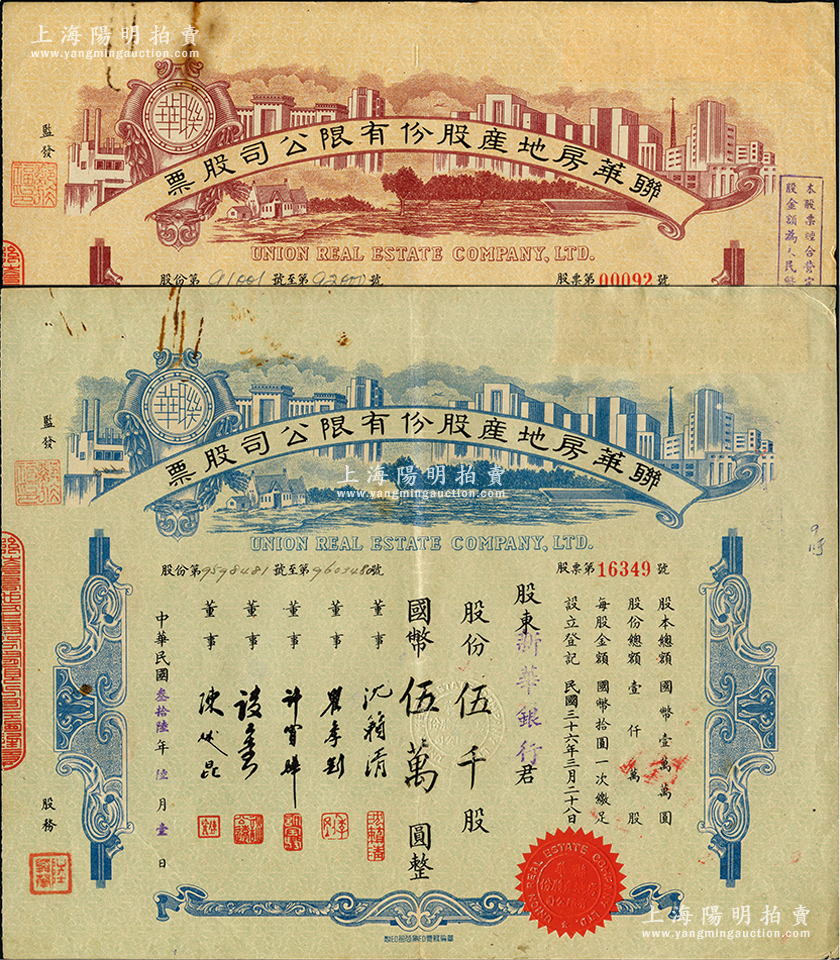 上海陽明拍賣
www.yangmingauction.com
聯華
監發
聯華房地產股份有限公司股票
UNION REAL ESTATE COMPANY, LTD.
股份第91001號至第92000號
股票第00092號
本股票經合營
股金額為人民幣
聯華
監發
聯華房地產股份有限公司股票
上海陽明拍賣
www.yangmingauction.com
UNION REAL ESTATE COMPANY, LTD.
股份第9598481號至第9603480號
股票第16349號
股本總額 國幣壹萬萬圓
股份總額 壹仟萬股
每股金額 國幣拾圓一次繳足
設立登記 民國三十六年三月二十八日
股東新華銀行君
股份伍千股
國幣伍萬圓整
董事 沈籟清
董事 瞿季剛
董事 許寶驊
董事
董事
中華民國叁拾陸年陸月壹日
股務
UNION REAL ESTATE COMPANY LTD.
上海陽明拍賣
www.yangmingauction.com